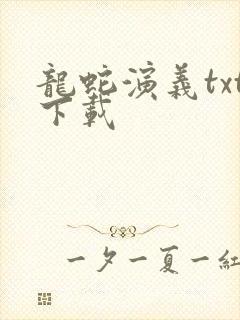 龍蛇演義txt
下載
一夕一夏一紅